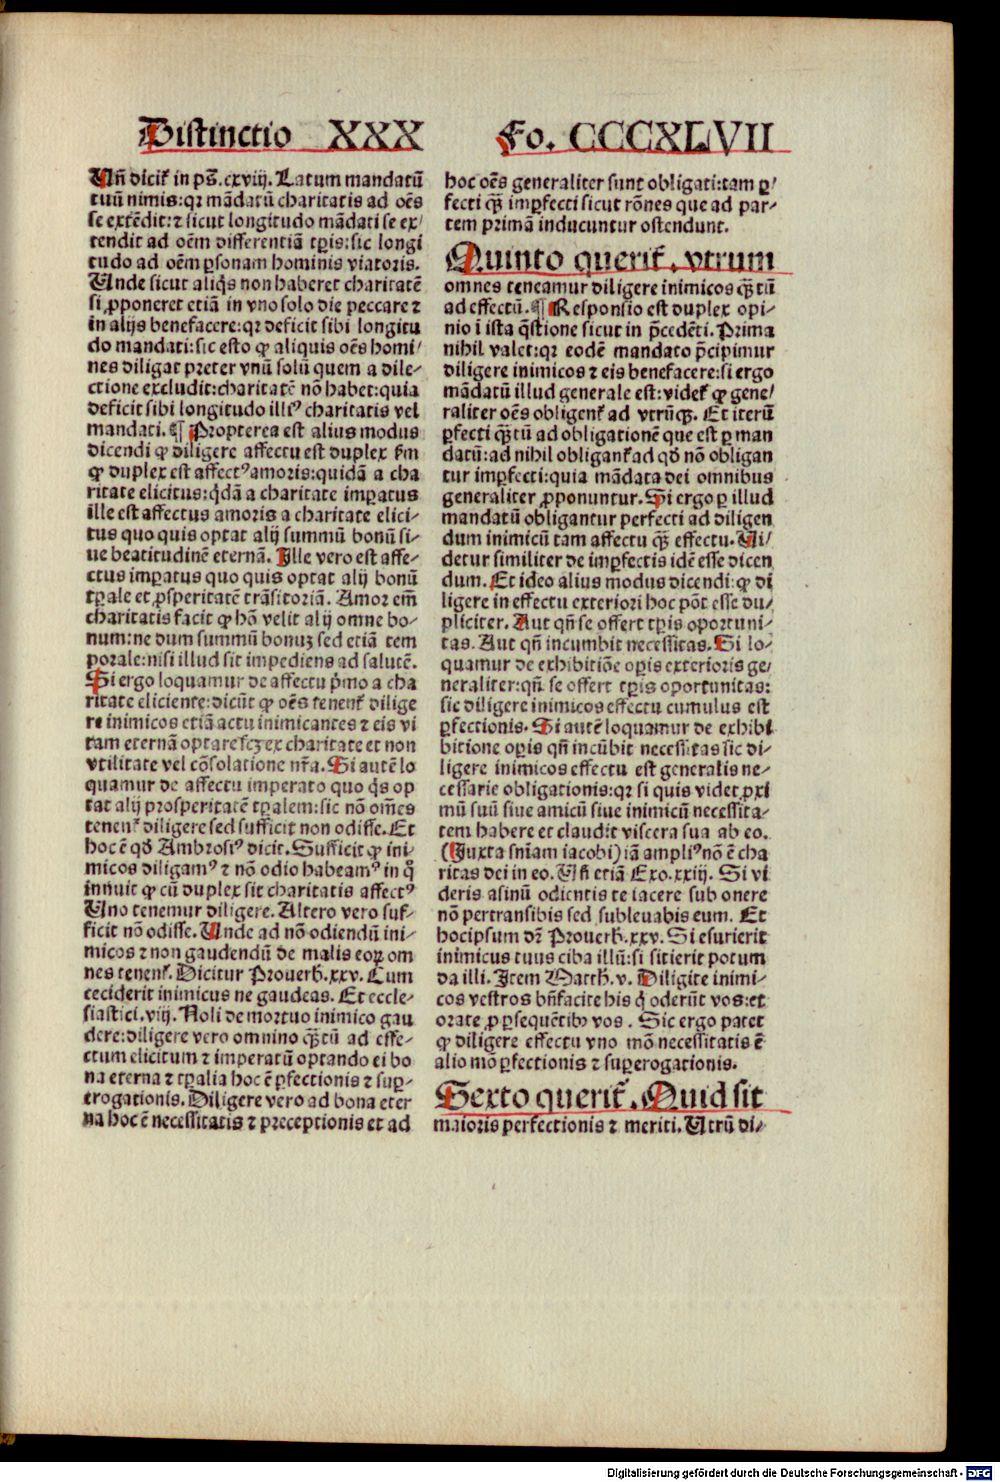 Distinctio XXX Fo. CCCXLVII
Uñ dicit᷑ in pˢ̄.cxviij. Latum mandatū
tuū nimis:qꝛ mādatū charitatis ad oēs
se extēdit:⁊ sicut longitudo mādati se ex/
tendit ad oēm differentiā tp̄is:sic longi
tudo ad oēm ꝑsonam hominis viatoris.
Unde sicut aliq̇s non haberet charitatē
si ꝓponeret etiā in vno solo die peccare ⁊
in alijs benefacere:qꝛ deficit sibi longitu
do mandati:sic esto ꝙ aliquis oēs homi/
nes diligat preter vnū solū quem a dile-
ctione excludit:charitatē nō habet:quia
deficit sibi longitudo illiꝰ charitatis vel
mandati. ¶ Propterea est alius modus
dicendi ꝙ diligere affectu est duplex ẜm
ꝙ duplex est affectꝰ amoris:quidā a cha
ritate elicitus:q̇dā a charitate imꝑatus
ille est affectus amoris a charitate elici-
tus quo quis optat alij summū bonū si-
ue beatitudinē eternā. Ille vero est affe-
ctus imꝑatus quo quis optat alij bonū
tꝑale et ꝓsperitatē trāsitoriā. Amor em̄
charitatis facit ꝙ hō velit alij omne bo-
num:ne dum summū bonuꝫ sed etiā tem
porale:nisi illud sit impediens ad salutē.
Si ergo loquamur de affectu p̄mo a cha
ritate eliciente:dicūt ꝙ oēs tenent᷑ dilige
re inimicos etiā actu inimicantes ⁊ eis vi
tam eternā optare sꝫ ex charitate et non
vtilitate vel cōsolatione nr̄a. Si autē lo
quamur de affectu imperato quo q̇s op
tat alij prosperitatē tꝑalem:sic nō om̄es
tenent᷑ diligere sed sufficit non odisse. Et
hoc ē qd̄ Ambrosiꝰ dicit. Sufficit ꝙ ini-
micos diligamꝰ ⁊ nō odio habeamꝰ in q̊
innuit ꝙ cū duplex sit charitatis affectꝰ
Uno tenemur diligere. Altero vero suf-
ficit nō odisse. Unde ad nō odiendū ini-
micos ⁊ non gaudendū de malis eoꝝ om
nes tenent᷑. Dicitur Prouerb̄.xxv. Cum
ceciderit inimicus ne gaudeas. Et eccle-
siastici.viij. Noli de mortuo inimico gau
dere:diligere vero omnino qꝫ̄tū ad affe-
ctum elicitum ⁊ imperatū optando ei bo
na eterna ⁊ tꝑalia hoc ē ꝑfectionis ⁊ suꝑ-
erogationis. Diligere vero ad bona eter
na hoc ē necessitatis ⁊ preceptionis et ad
hoc oēs generaliter sunt obligati:tam ꝑ/
fecti qꝫ̄ imꝑfecti sicut rōnes que ad par-
tem primā inducuntur ostendunt.
Quinto querit᷑. vtrum
omnes teneamur diligere inimicos qꝫ̄tū
ad effectū. ¶ Responsio est duplex opi-
nio ī ista q̄stione sicut in p̄cedēti. Prima
nihil valet:qꝛ eodē mandato p̄cipimur
diligere inimicos ⁊ eis benefacere:si ergo
mādatū illud generale est:videt᷑ ꝙ gene/
raliter oēs obligent᷑ ad vtrūqꝫ. Et iterū
ꝑfecti qꝫ̄tū ad obligationē que est ꝑ man
datū:ad nihil obligant᷑ ad qd̄ nō obligan
tur imꝑfecti:quia mādata dei omnibus
generaliter ꝓponuntur. Si ergo ꝑ illud
mandatū obligantur perfecti ad diligen
dum inimicū tam affectu qꝫ̄ effectu. Ui/
detur similiter de imꝑfectis idē esse dicen
dum. Et ideo alius modus dicendi:ꝙ di
ligere in effectu exteriori hoc pōt esse du/
pliciter. Aut qn̄ se offert tp̄is oportuni-
tas. Aut qn̄ incumbit necessitas. Si lo-
quamur de exhibitiōe oꝑis exterioris ge/
neraliter:qn̄ se offert tp̄is oportunitas:
sic diligere inimicos effectu cumulus est
ꝑfectionis. Si autē loquamur de exhibi
bitione oꝑis qn̄ incūbit necessitas sic di-
ligere inimicos effectu est generalis ne-
cessarie obligationis:qꝛ si quis videt ꝓxi
mū suū siue amicū siue inimicū necessita-
tem habere et claudit viscera sua ab eo.
(Juxta sniam iacobi) iā ampliꝰ nō ē cha
ritas dei in eo. Uñ etiā Exo.xxiij. Si vi
deris asinū odientis te iacere sub onere
nō pertransibis sed subleuabis eum. Et
hocipsum dr̄ Prouerb̄.xxv. Si esurierit
inimicus tuus ciba illū:si sitierit potum
da illi. Item Matth̄.v. Diligite inimi-
cos vestros bn̄facite his q̇ oderūt vos:et
orate ꝓ ꝑsequētibꝰ vos. Sic ergo patet
ꝙ diligere effectu vno mō necessitatis ē
alio mō ꝑfectionis ⁊ suꝑerogationis.
Sexto querit᷑. Quid sit
maioris perfectionis ⁊ meriti. Utrū di-
Digitalisierung gefördert durch die Deutsche Forschungsgemeinschaft - DFG